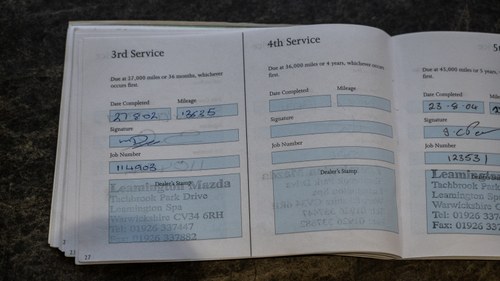 3rd Service
Due at 27,000 miles or 36 months, whichever
occurs first.
Date Completed Mileage
27 8 02
Signature
Job Number
114903
Dealer's Stamp
Leamington Mazda
Tachbrook Park Drive
Leamington Spa
Warwickshire CV34 6RH
Tel: 01926 337447
Fax: 01926 337882
27
4th Service
Due at 36,000 miles or 4 years, whichever occurs
first.
Date Completed Mileage
Signature
Job Number
Dealer's Stamp
Due at 45,000 miles or 5 years,
first.
Date Completed
23-8-04
Signature
Job Number
12353
Leamington
Tachbrook Park
Leamington Spa
Warwickshire
Tel: 01926 337
Fax: 01926 33